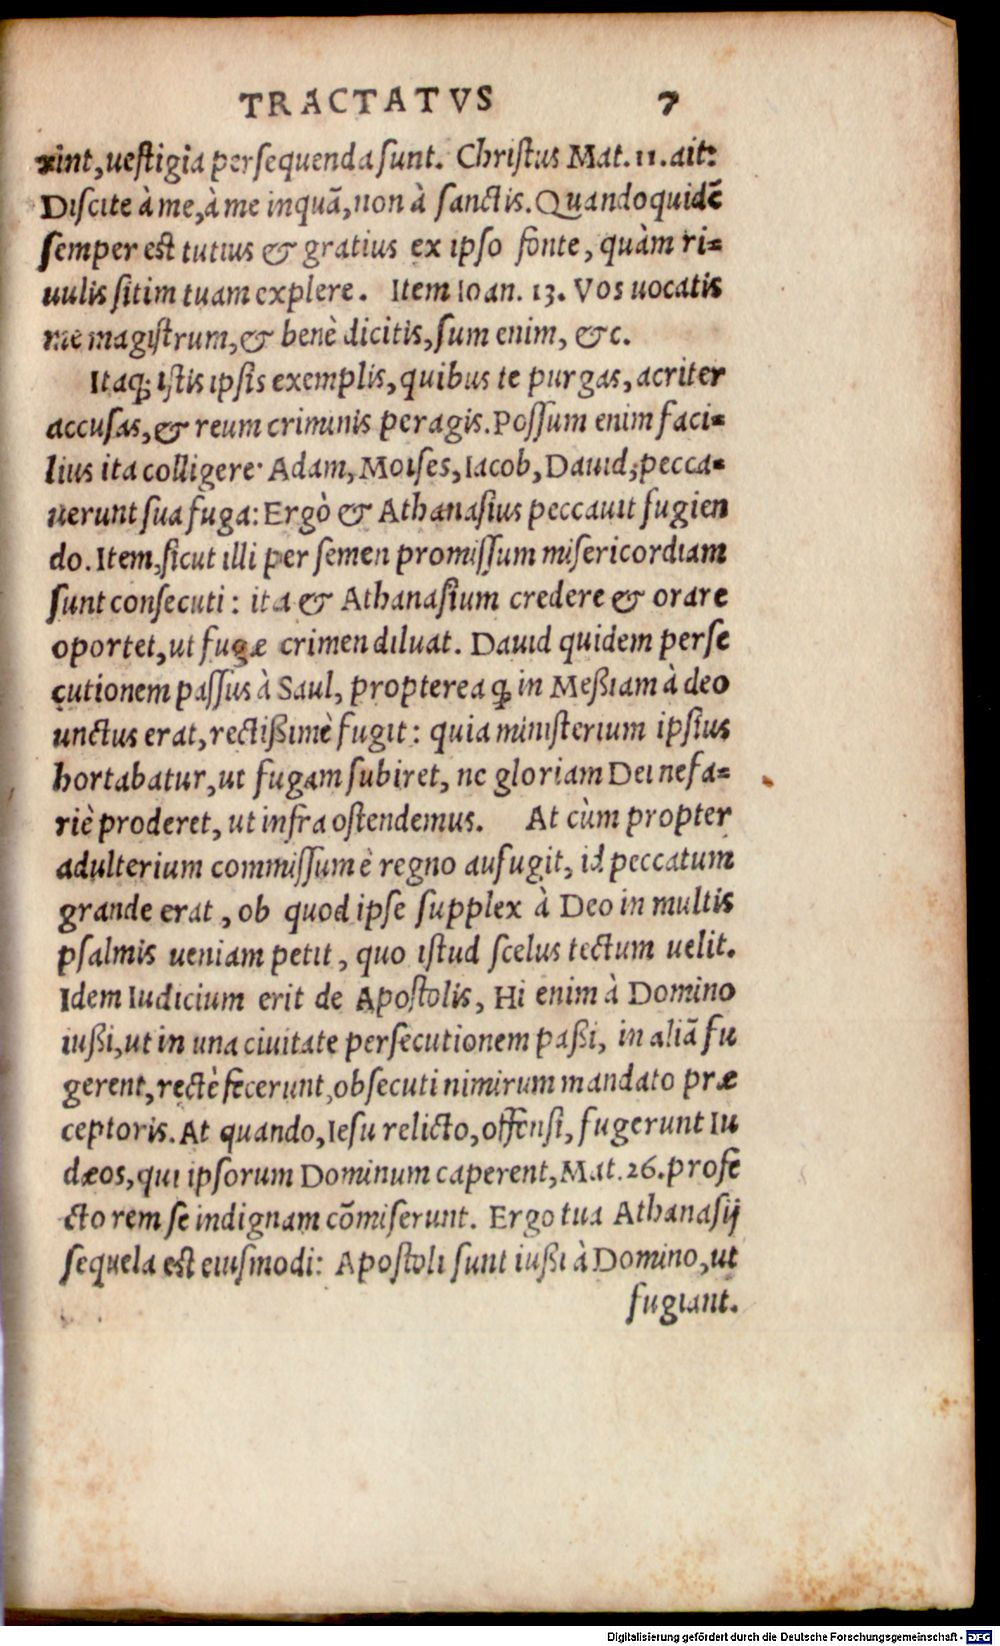 TRACTATVS 7
xint, uestigia persequenda sunt. Christus Mat. 11. ait:
Discite à me, à me inquã, non à sanctis. Quandoquidẽ
semper est tutius & gratius ex ipso fonte, quàm ri=
uulis sitim tuam explere. Item Ioan. 13. Vos uocatis
me magistrum, & benè dicitis, sum enim, &c.
Itaq; istis ipsis exemplis, quibus te purgas, acriter
accusas, & reum criminis peragis. Possum enim faci=
lius ita colligere· Adam, Moises, Iacob, Dauid, pecca=
uerunt sua fuga: Ergò & Athanasius peccauit fugien
do. Item, sicut illi per semen promissum misericordiam
sunt consecuti: ita & Athanasium credere & orare
oportet, ut fugæ crimen diluat. Dauid quidem perse
cutionem passus à Saul, propterea ꝙ in Meßiam à deo
unctus erat, rectißimè fugit: quia ministerium ipsius
hortabatur, ut fugam subiret, ne gloriam Dei nefa=
riè proderet, ut infra ostendemus. At cùm propter
adulterium commissum è regno aufugit, id peccatum
grande erat, ob quod ipse supplex à Deo in multis
psalmis ueniam petit, quo istud scelus tectum uelit.
Idem Iudicium erit de Apostolis, Hi enim à Domino
iußi, ut in una ciuitate persecutionem paßi, in aliã fu
gerent, rectè fecerunt, obsecuti nimirum mandato præ
ceptoris. At quando, Iesu relicto, offensi, fugerunt Iu
dæos, qui ipsorum Dominum caperent, Mat. 26. profe
cto rem se indignam cõmiserunt. Ergo tua Athanasij
sequela est eiusmodi: Apostoli sunt iußi à Domino, ut
fugiant.
Digitalisierung gefördert durch die Deutsche Forschungsgemeinschaft - DFG